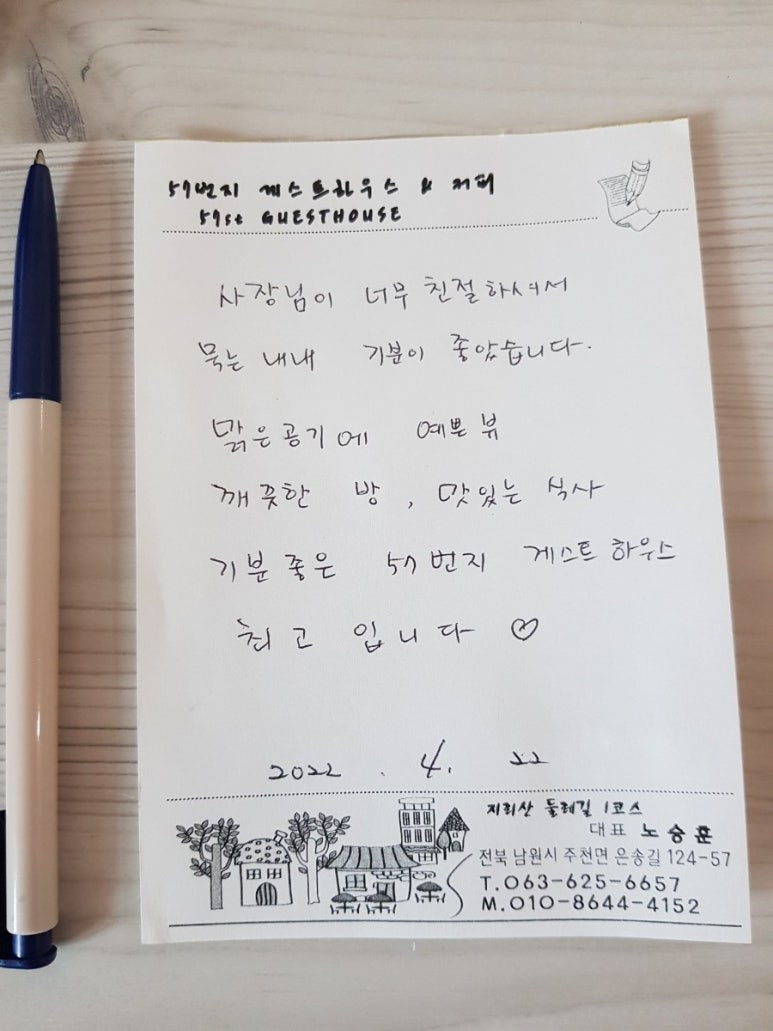 57번지 게스트하우스 & 커피
57st GUESTHOUSE
사장님이 너무 친절하셔서
묵는 내내 기분이 좋았습니다.
맑은공기에 예쁜 뷰
깨끗한 방, 맛있는 식사
기분 좋은 57번지 게스트하우스
최고 입니다 ♡
2022. 4. 22
지리산 둘레길 1코스
대표 노승훈
전북 남원시 주천면 은송길 124-57
T.063-625-6657
M.010-8644-4152